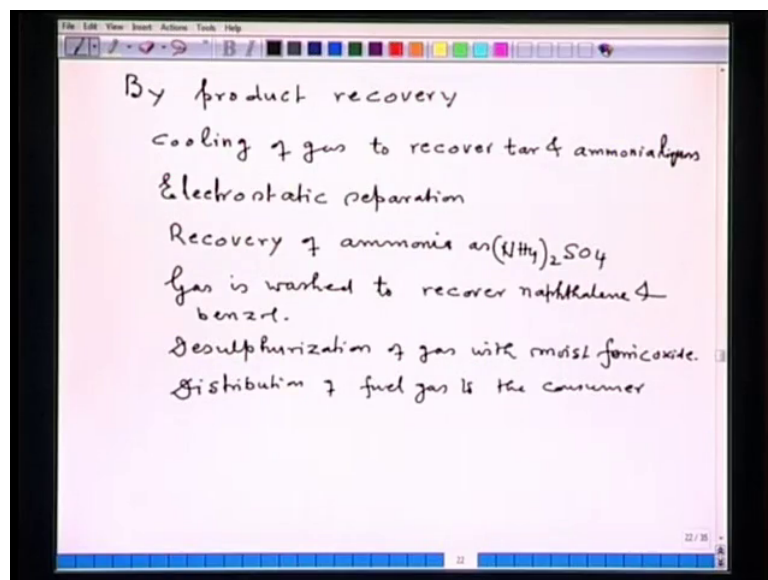 File Edit View Insert Actions Tools Help
By product recovery
Cooling of gas to recover tar & ammonia liquors
Electrostatic separation
Recovery of ammonia as (NH4)2 SO4
Gas is washed to recover naphthalene &
benzol.
Desulphurization of gas with moist ferric oxide.
Distribution of fuel gas to the consumer
22 / 35
22